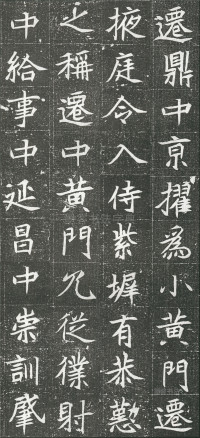 遷鼎中京擢為小黃門遷
掖庭令入侍紫墀有恭懃
之稱遷中黃門冗從僕射
中給事中延昌中崇訓肇